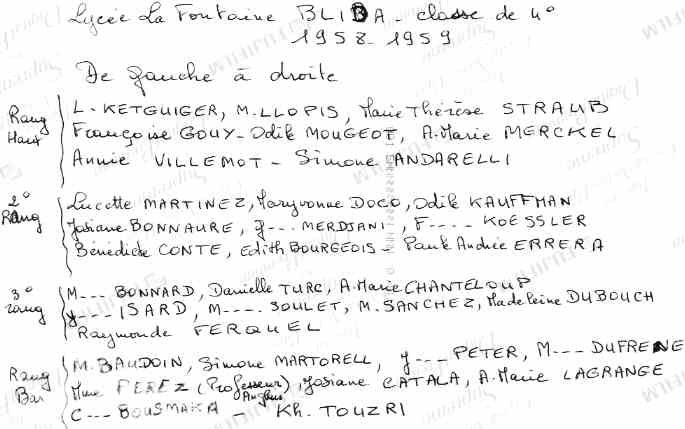 Lycée La Fontaine BLIDA - classe de 4°
1958-1959
De gauche à droite
Rang Haut
L. KETGUIGER, M. LLOPIS, Marie Thérèse STRAUB
Françoise GOUY - Odile MOUGEOT, A. Marie MERCKEL
Annie VILLEMOT - Simone ANDARELLI
2° Rang
Lucette MARTINEZ, Maryvonne DOCO, Odile KAUFFMAN
Josiane BONNAURE, J--- MERDJANI, F---- KOESSLER
Bénédicte CONTE, Edith BOURGEOIS - Paule Andrée ERRERA
3° rang
M--- BONNARD, Danielle TURC, A. Marie CHANTELOUP
---- ISARD, M---- SOULET, M. SANCHEZ, Madeleine DUBOUCH
Raymonde FERQUEL
Rang Bas
M. BAUDOIN, Simone MARTORELL, J--- PETER, M--- DUFRENE
Mme PEREZ (Professeur Anglais), Josiane CATALA, A. Marie LAGRANGE
C--- BOUSMAHA - Kh. TOUZRI